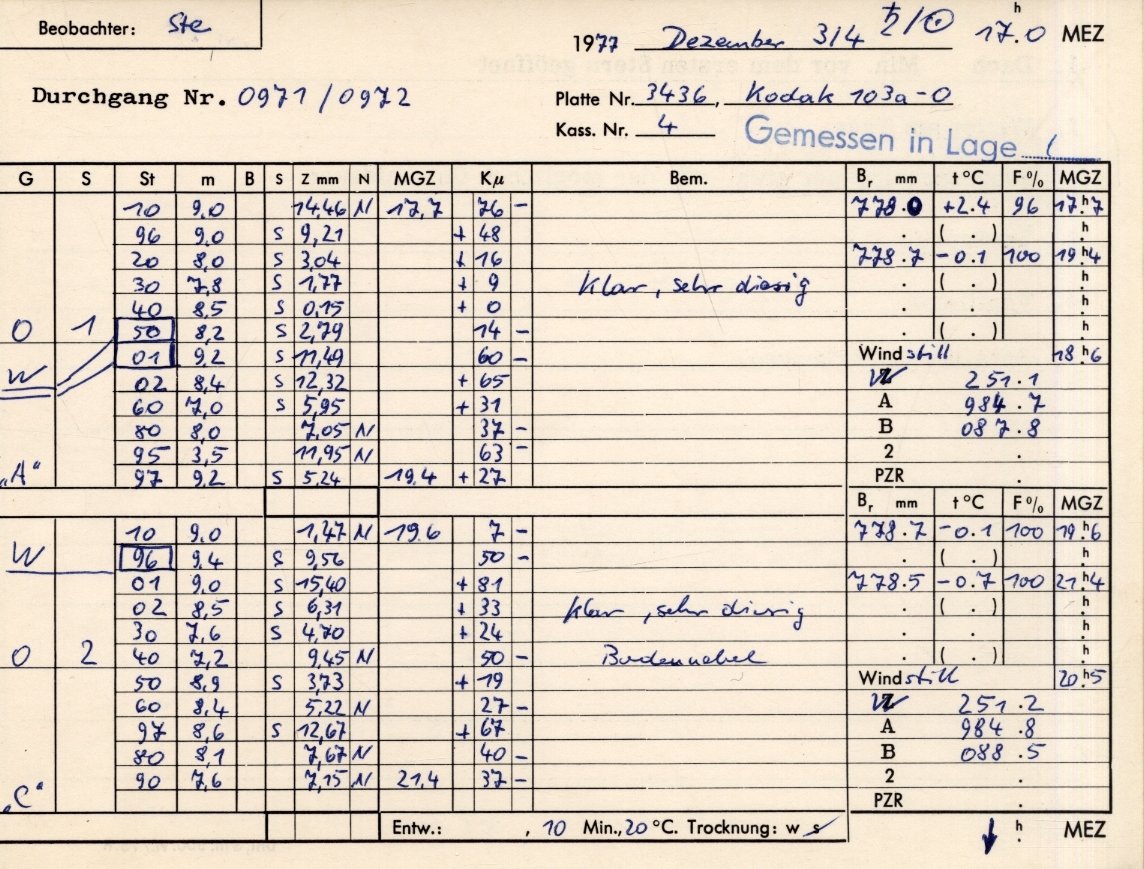 Beobachter: Ste
1977 Dezember 3/4 ♄/☉ 17.0 h MEZ
Durchgang Nr. 0971/0972
Platte Nr. 3436, Kodak 103a-O
Kass. Nr. 4
Gemessen in Lage
G S St m B S Z mm N MGZ Kμ Bem. Br mm t°C F% MGZ
10 9,0 14,46 N 17,7 76 - 778.0 +2.4 96 17.h7
96 9,0 S 9,21 + 48 . ( . ) h
20 8,0 S 3,04 + 16 778.7 -0.1 100 19.h4
30 7,8 S 1,77 + 9 Klar, sehr diesig . ( . ) h
40 8,5 S 0,15 + 0 . . h
O 1 50 8,2 S 2,79 14 - . ( . ) h
01 9,2 S 11,49 60 - Wind still 18 h6
W 02 8,4 S 12,32 + 65 W 251.1
60 7,0 S 5,95 + 31 A 984.7
80 8,0 7,05 N 37 - B 087.8
95 3,5 11,95 N 63 - 2 .
„A“ 97 9,2 S 5,24 19,4 + 27 PZR .
Br mm t°C F% MGZ
10 9,0 1,47 N 19.6 7 - 778.7 -0.1 100 19.h6
W 96 9,4 S 9,56 50 - . ( . ) h
01 9,0 S 15,40 + 81 778.5 -0.7 100 21.h4
02 8,5 S 6,31 + 33 Klar, sehr diesig . ( . ) h
30 7,6 S 4,70 + 24 . . h
O 2 40 7,2 9,45 N 50 - Bodennebel . ( . ) h
50 8,9 S 3,73 + 19 Wind still 20.h5
60 8,4 5,22 N 27 - W 251.2
97 8,6 S 12,67 + 67 A 984.8
80 8,1 7,67 N 40 - B 088.5
90 7,6 7,15 N 21,4 37 - 2 .
„C“ PZR .
Entw.: , 10 Min., 20 °C. Trocknung: w s h MEZ